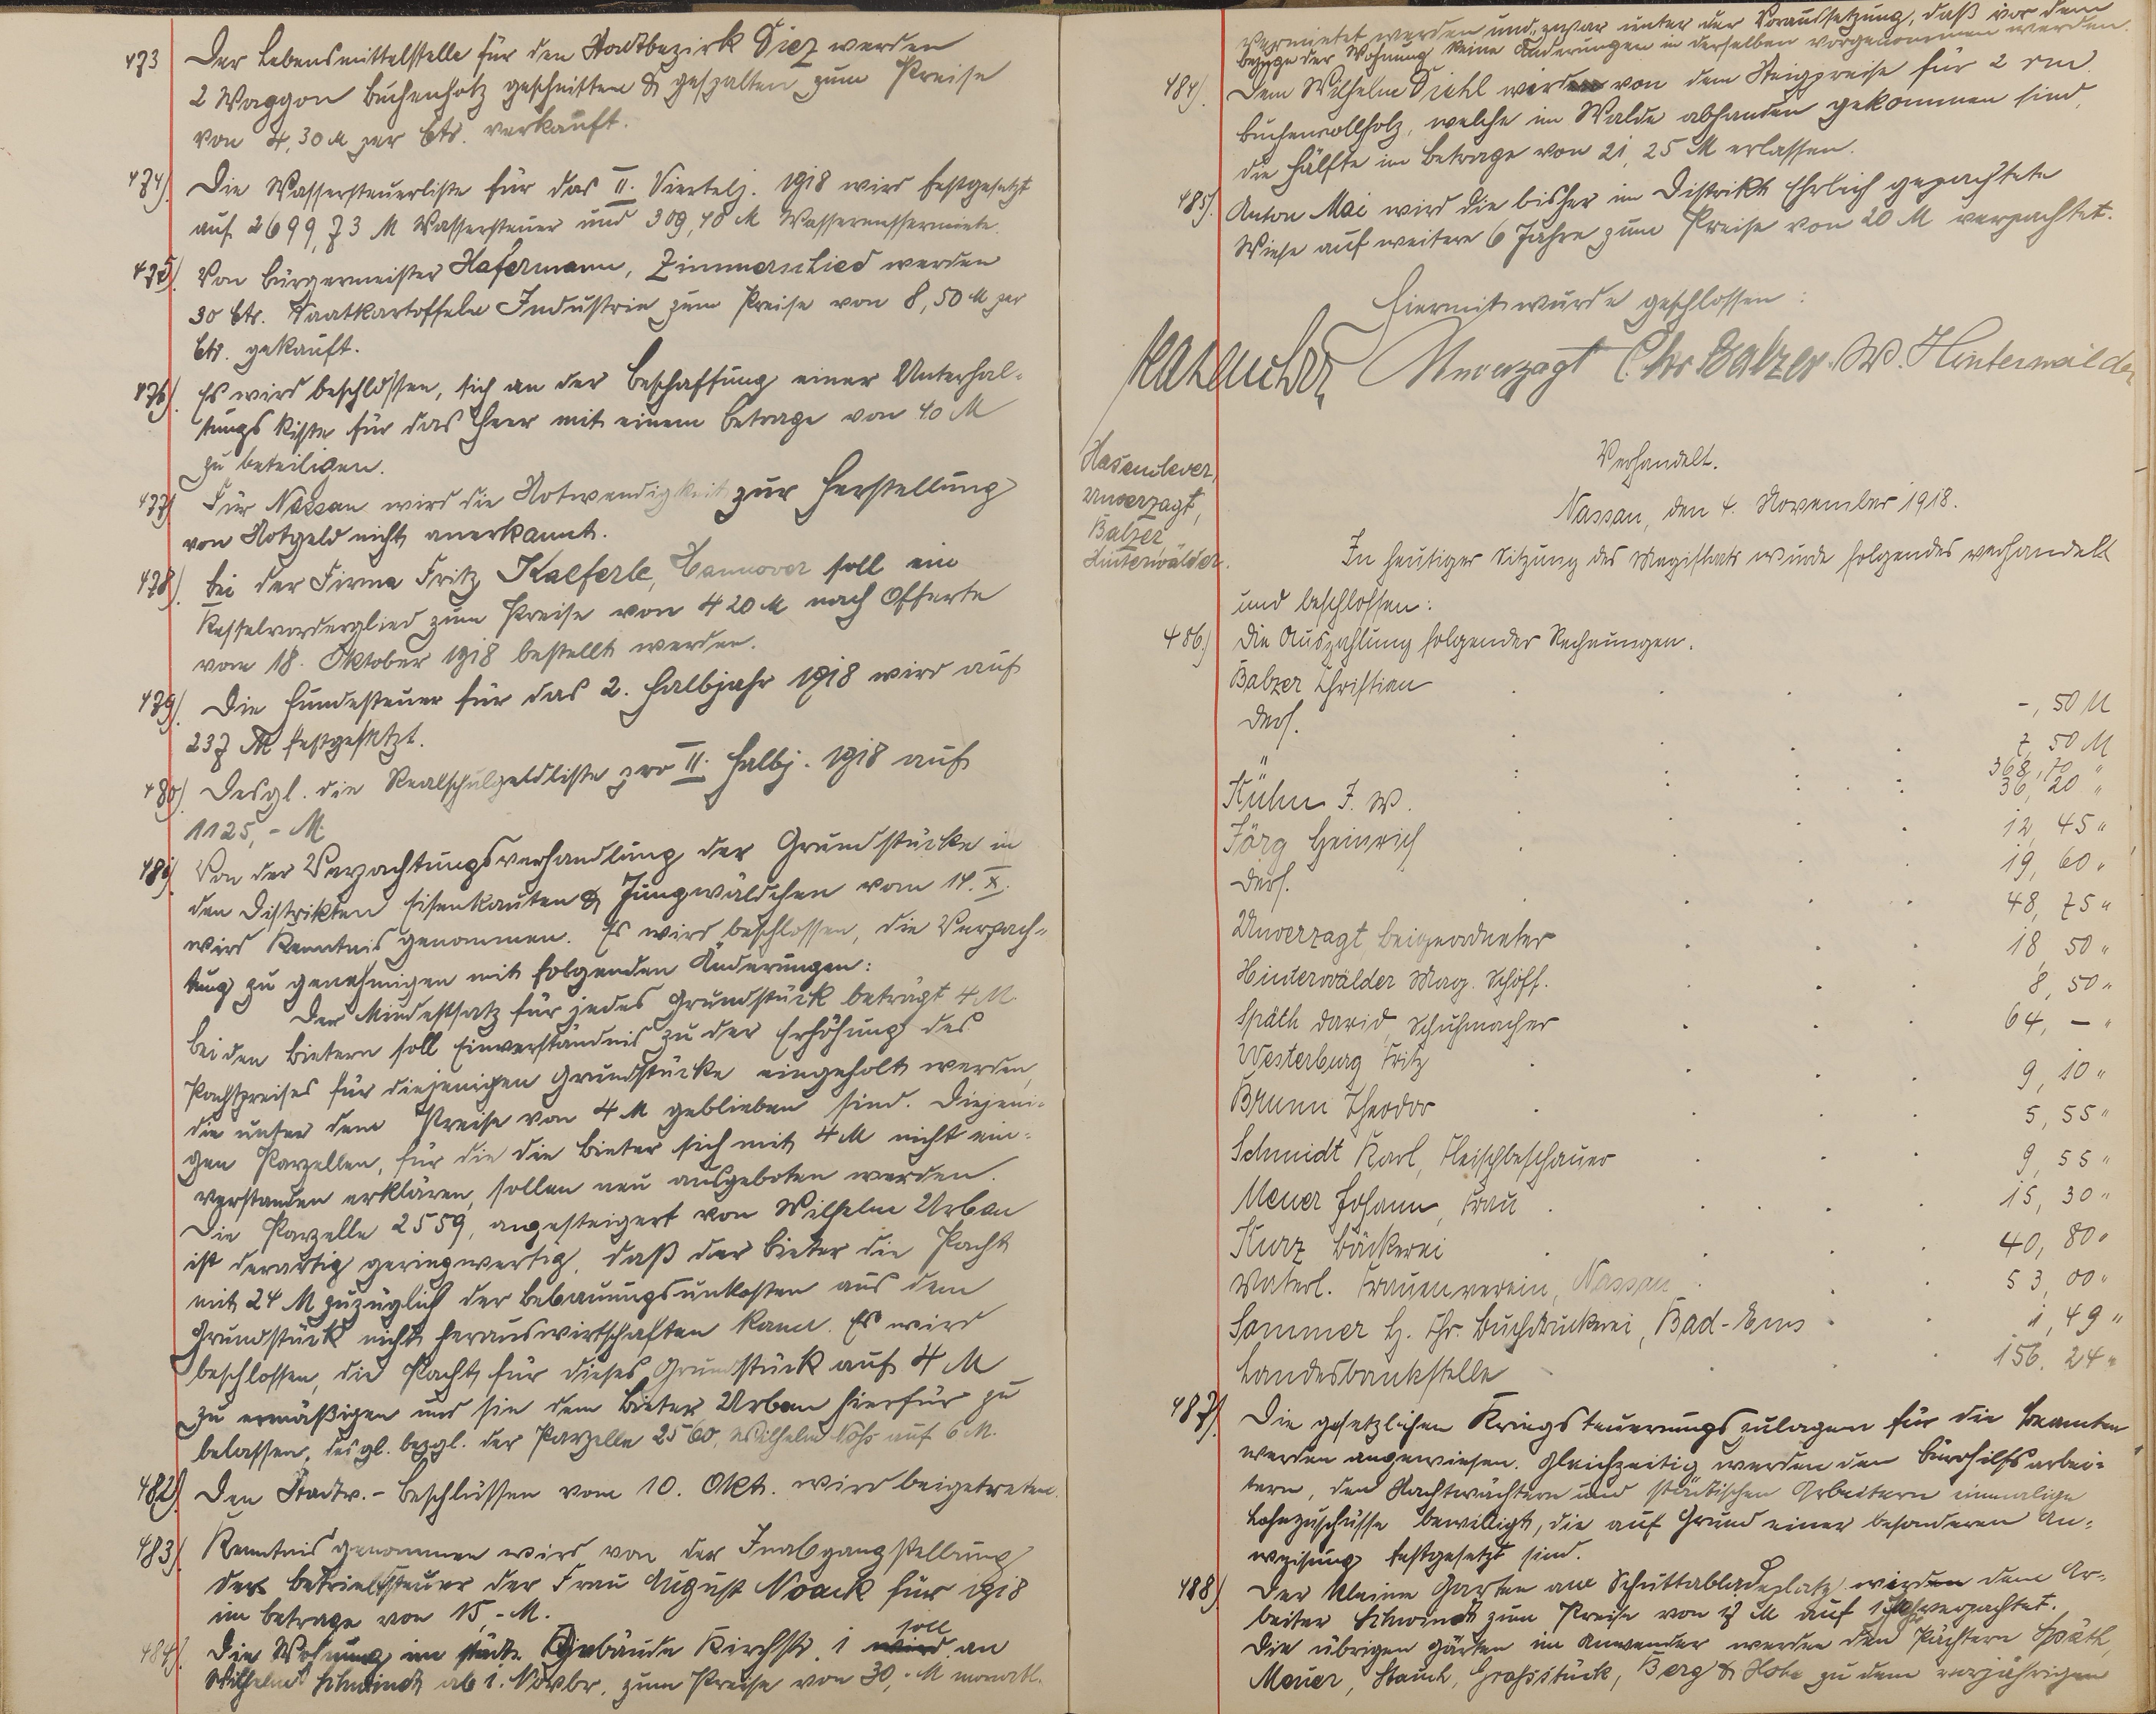 473 Der Lebensmittelstelle für den Stadtbezirk Diez werden
2 Waggon Buchenholz geschnitten & gespalten zum Preise
von 4,30 M per Ctr. verkauft.
474). Die Wassersteuerliste für das II. Viertelj. 1918 wird festgesetzt
auf 2699,73 M Wassersteuer und 309,40 M Wassermessermiete.
475). Von Bürgermeister Hafermann, Zimmerschied werden
30 Ctr. Saatkartoffeln Industrie zum Preise von 8,50 M per
Ctr. gekauft.
476). Es wird beschlossen, sich an der Beschaffung einer Unterhal-
tungs Kiste für das Heer mit einem Betrage von 40 M
zu beteiligen.
477) Für Nassau wird die Notwendigkeit zur Herstellung
von Notgeld nicht anerkannt.
478). Bei der Firma Fritz Kaeferle, Hannover soll ein
Kesselvorderglied zum Preise von 420 M nach Offerte
vom 18. Oktober 1918 bestellt werden.
479). Die Hundesteuer für das 2. Halbjahr 1918 wird auf
237 M festgesetzt.
480). Desgl. die Realschulgeldliste pro II. Halbj. 1918 auf
1125,- M.
481). Von der Verpachtungsverhandlung der Grundstücke in
den Distrikten Eisenkauten & Jungwäldchen vom 14. X.
wird Kenntnis genommen. Es wird beschlossen, die Verpach-
tung zu genehmigen mit folgenden Änderungen:
Der Mindestsatz für jedes Grundstück beträgt 4 M.
bei den Bietern soll Einverständnis zu der Erhöhung des
Pachtpreises für diejenigen Grundstücke eingeholt werden,
die unter dem Preise von 4 M geblieben sind. Diejeni-
gen Parzellen, für die die Bieter sich mit 4 M nicht ein-
verstanden erklären, sollen neu ausgeboten werden.
Die Parzelle 2559, angesteigert von Wilhelm Urban
ist derartig geringwertig, daß der Bieter die Pacht
mit 24 M zuzüglich der Bebauungsunkosten aus dem
Grundstück nicht herauswirtschaften kann. Es wird
beschlossen, die Pacht für dieses Grundstück auf 4 M
zu ermäßigen und sie dem Bieter Urban hierfür zu
belassen, desgl. bezgl. der Parzelle 2560, Wilhelm auf 6 M.
482). Den Stadtv.-Beschlüssen vom 10. Okt. wird beigetreten.
483). Kenntnis genommen wird von der Inabgangstellung
der Betriebssteuer der Frau August Noack für 1918
im Betrage von 15,- M.
484). Die Wohnung im städt. Gebäude Kirchstr. 1 wird soll an
Wilhelm Schwindt ab 1. Novbr. zum Preise von 30,- M monatl.
vermietet werden und zwar unter der Voraussetzung, daß vor dem
Bezuge der Wohnung keine Änderungen in derselben vorgenommen werden.
484). Dem Wilhelm Diehl werden von dem Steigpreise für 2 rm
Buchenrollholz, welche im Walde abhanden gekommen sind,
die Hälfte im Betrage von 21,25 M erlassen.
485). Anton Mai wird die bisher im Distrikt Ehrlich gepachtete
Wiese auf weitere 6 Jahre zum Preise von 20 M verpachtet.
Hiermit wurde geschlossen:
Hasenclever Unverzagt Chr Balzer W. Hinterwälder
Hasenclever,
Unverzagt,
Balzer,
Hinterwälder.
Verhandelt.
Nassau, den 4. November 1918.
In heutiger Sitzung des Magistrats wurde folgendes verhandelt
und beschlossen:
486.) Die Auszahlung folgender Rechnungen.
Balzer Christian . . . . -,50 M
Ders. . . . . 7,50 M
" . . . . 368,70 "
Kuhn F. W. . . . . 36,20 "
Jörg Heinrich . . . . 12,45 "
Ders. . . . . 19,60 "
Unverzagt, Beigeordneter . . . 48,75 "
Hinterwälder Mag. Schöff. . . . 18,50 "
Späth David, Schuhmacher . . . 8,50 "
Westerburg Fritz . . . . 64,- "
Brunn Theodor . . . . 9,10 "
Schmidt Karl, Fleischbeschauer . . . 5,55 "
Meuer Johann, Frau . . . . 9,55 "
Kurz Bäckerei . . . . 15,30 "
Vaterl. Frauenverein, Nassau . . . 40,80 "
Sommer H. Chr. Buchdruckerei, Bad-Ems . . 53,00 "
Landesbankstelle . . . 1,49 "
156,24 "
487). Die gesetzlichen Kriegsteuerungszulagen für die Beamten
werden angewiesen. Gleichzeitig werden den Bürohilfsarbei-
tern, den Nachtwächtern und städtischen Arbeitern einmalige
Lohnzuschüsse bewilligt, die auf Grund einer besonderen An-
weisung festgesetzt sind.
488). Der kleine Garten am Schuttabladeplatz wird dem Ar-
beiter Schwindt zum Preise von M auf 1 Jahr verpachtet.
Die übrigen Gärten im Anwender werden den Pächtern Späth,
Meuer, Stauch, Großstück, Berg & Hohe zu dem vorjährigen